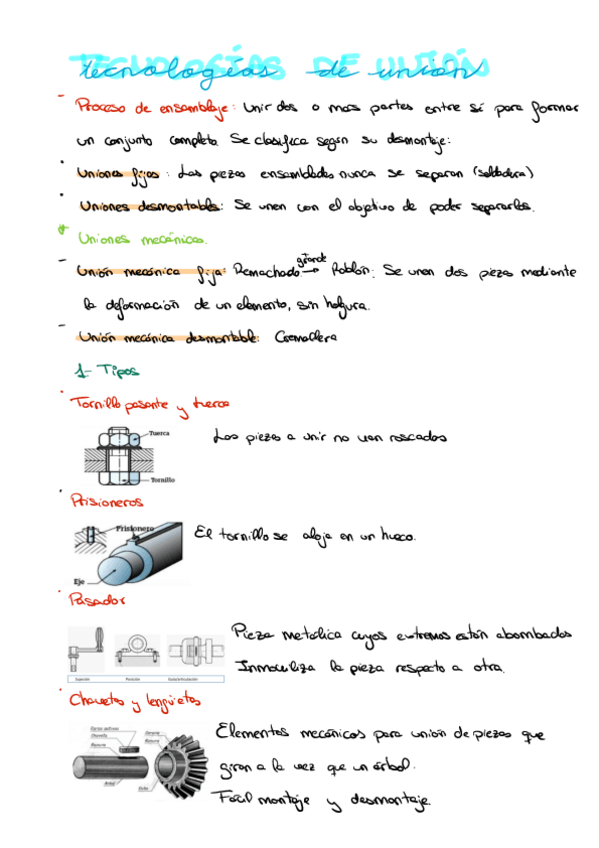 TECNOLOGÍAS DE UNIÓN
tecnologías de unión
- Proceso de ensamblaje: Unir dos o mas partes entre sí para formar
un conjunto completo. Se clasifica según su desmontaje:
· Uniones fijas: Las piezas ensambladas nunca se separan (soldadura)
· Uniones desmontables: Se unen con el objetivo de poder separarlos.
* Uniones mecánicas.
- Unión mecánica fija: Remachado grande → Roblón: Se unen dos piezas mediante
la deformación de un elemento, sin holgura.
- Unión mecánica desmontable: Cremallera
1- Tipos
· Tornillo pasante y tuerca
Tuerca
Tornillo
Las piezas a unir no van roscados
· Prisioneros
Prisionero
Eje
El tornillo se aloja en un hueco.
· Pasador
Sujeción Posición Guía/Articulación
Pieza metálica cuyos extremos están abombados
Inmoviliza la pieza respecto a otra.
· Chavetas y lengüetas
Chaveta
Ranura
Árbol
Ranura
Cubo
Elementos mecánicos para unión de piezas que
giran a la vez que un árbol.
Fácil montaje y desmontaje.